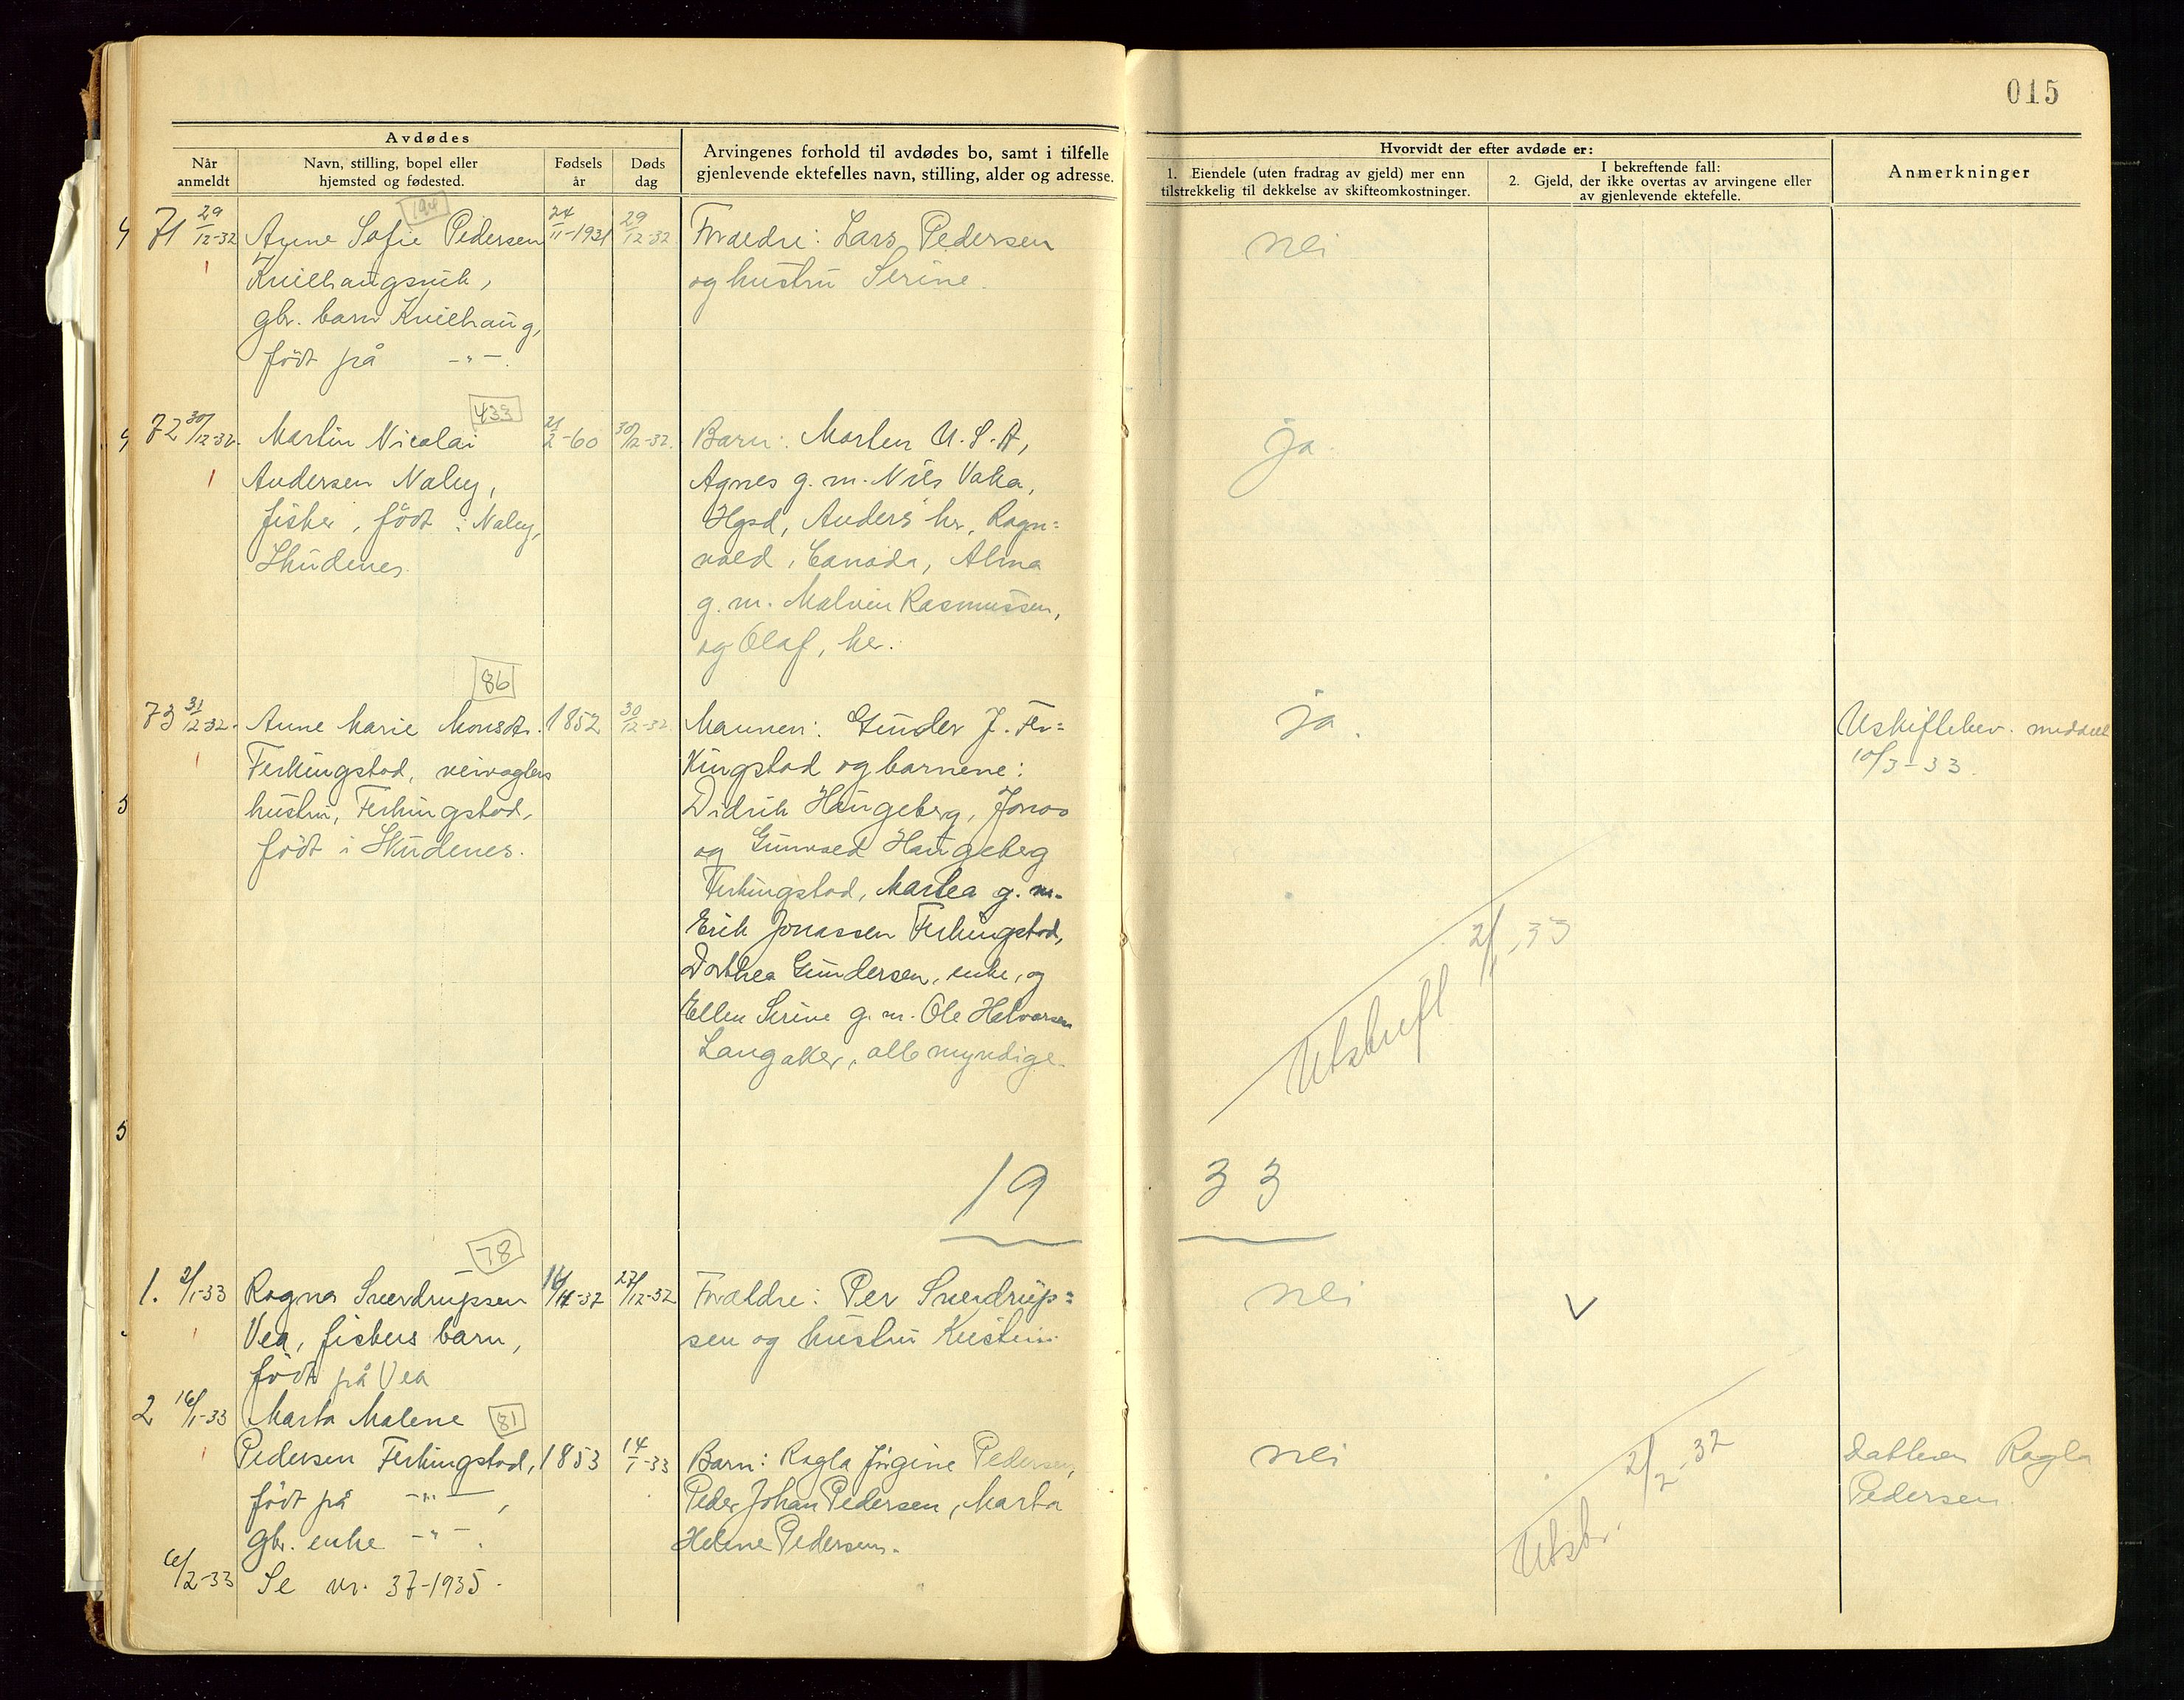 015
Avdødes
Når anmeldt
Navn, stilling, bopel eller hjemsted og fødested.
Fødsels år
Døds dag
Arvingenes forhold til avdødes bo, samt i tilfelle gjenlevende ektefelles navn, stilling, alder og adresse.
Hvorvidt der efter avdøde er:
1. Eiendele (uten fradrag av gjeld) mer enn tilstrekkelig til dekkelse av skifteomkostninger.
I bekreftende fall:
2. Gjeld, der ikke overtas av arvingene eller av gjenlevende ektefelle.
Anmerkninger
194
71 29/12-32 Anne Sofie Pedersen 24/11-1931 29/12-32 Foraedre: Lars Pedersen nei
og hustru Serine.
gbr. barn
født på -"-.
433
72 30/12-32. Martin Nicolai 21/2-60 30/12-32. Barn: Morten U.S.A, ja.
Andersen Naley, Agnes g. m. Nils Vaka,
fisker, født i Naley, Hgsd, Anders hr, Ragn=
Skudenes. vald, Canada, Alma
g. m. Malvin Rasmussen,
og Olaf, her.
86
73 31/12-32. Anne Marie Monsdtr. 1852 30/12-32. Mannen: Gunder J. Fer= ja. Uskiftebev. meddelt
Ferkingstad, kingstad og barnene: 10/3-33.
hustru, Ferkingstad, Didrik Haugeberg, Jonas
født i Skudenes. og Gunvald Haugeberg
Ferkingstad, Martea g. m.
Erik Jonassen Ferkingstad,
Dorthea Gundersen, enke, og
Ellen Serine g. m. Ole Halvorsen
Langaker, alle myndige.
Utskrift 2/1-33
19 33
78
1. 2/1-33 Ragna Sverdrupsen 27/12-32 Foraldre: Per Sverdrup= nei V
Vea, fiskers barn, sen og hustru
født på Vea
2 16/1-33 Marta Malene 81
Pedersen Ferkingstad, 1853 14/1-33 Barn: Ragla Jørgine Pedersen, nei Datteren Ragla
født på -"-, Peder Johan Pedersen, Marta Pedersen.
gbr. enke -"-. Helene Pedersen.
Utskr. 2/2-32
6/2-33 Se nr. 37-1935.